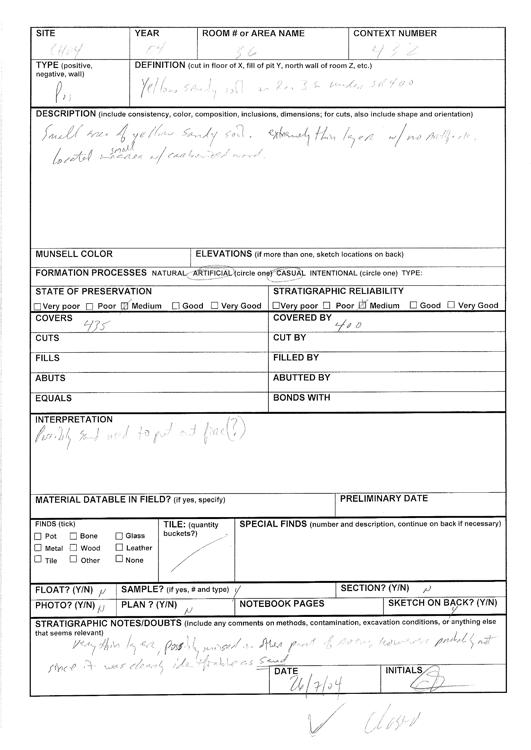 SITE YEAR ROOM # or AREA NAME CONTEXT NUMBER
CH04 36 432
TYPE (positive, negative, wall)
Pos
DEFINITION (cut in floor of X, fill of pit Y, north wall of room Z, etc.)
Yellow sandy soil in Rm 36 under SU 400
DESCRIPTION (include consistency, color, composition, inclusions, dimensions; for cuts, also include shape and orientation)
Small area of yellow sandy soil. extremely thin layer w/ no
located in small area w/ carbonized wood.
MUNSELL COLOR ELEVATIONS (if more than one, sketch locations on back)
FORMATION PROCESSES NATURAL ARTIFICIAL (circle one) CASUAL INTENTIONAL (circle one) TYPE:
STATE OF PRESERVATION STRATIGRAPHIC RELIABILITY
Very poor Poor Medium Good Very Good Very poor Poor Medium Good Very Good
COVERS 435 COVERED BY 400
CUTS CUT BY
FILLS FILLED BY
ABUTS ABUTTED BY
EQUALS BONDS WITH
INTERPRETATION
Possibly sand used to put out fire(?)
MATERIAL DATABLE IN FIELD? (if yes, specify) PRELIMINARY DATE
FINDS (tick) TILE: (quantity buckets?) SPECIAL FINDS (number and description, continue on back if necessary)
Pot Bone Glass
Metal Wood Leather
Tile Other None
FLOAT? (Y/N) N SAMPLE? (if yes, # and type) SECTION? (Y/N) N
PHOTO? (Y/N) N PLAN ? (Y/N) N NOTEBOOK PAGES SKETCH ON BACK? (Y/N)
STRATIGRAPHIC NOTES/DOUBTS (include any comments on methods, contamination, excavation conditions, or anything else
that seems relevant)
Very thin layer, possibly missed in other part of room, however probably not
since it was clearly identifiable as sand
DATE INITIALS
26/7/04
Closed